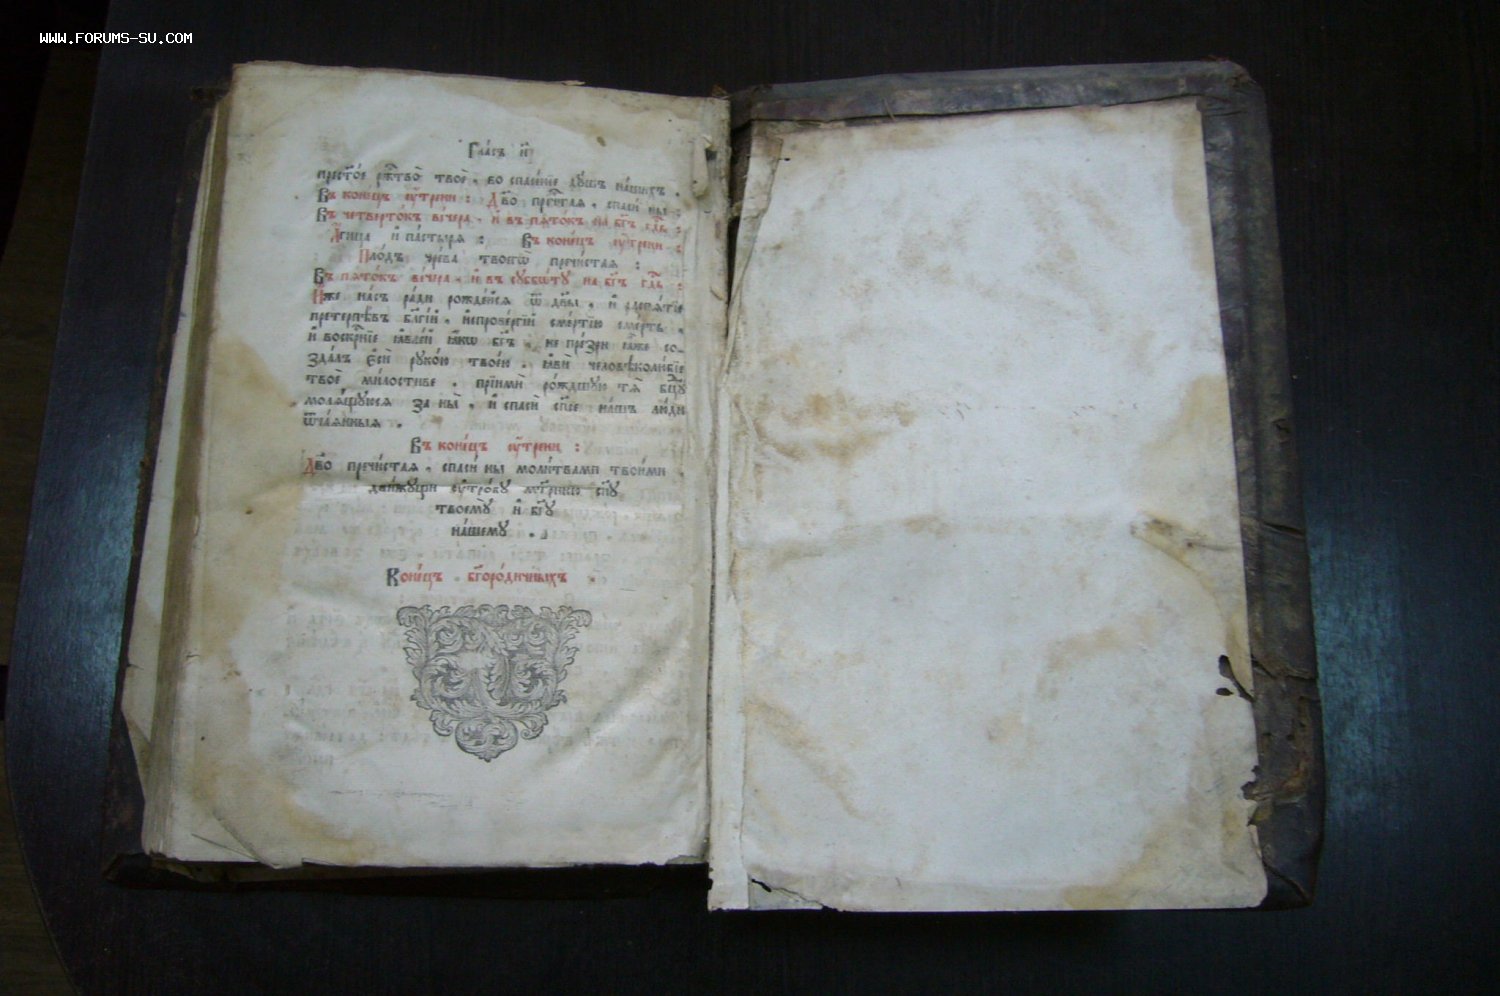 WWW.FORUMS-SU.COM
Гла́съ и҃
прест҃о́е рж҃тво̀ твоѐ , во спасе́нїе ду́шъ на́шихъ .
Въ коне́цъ оу҆́трени : Дв҃о преч҇тая , спаси́ ны :
Въ четверто́къ ве́чера , и҆ въ пято́къ на бг҃ъ гд҇ь :
А҆́гнца и҆ па́стыря : Въ коне́цъ оу҆́трени :
Пло́дъ чре́ва твоегѡ̀ пречи́стая :
Въ пято́къ ве́чера , и҆ въ суббѡ́ту на бг҃ъ гд҇ь :
И҆́же на́съ ра́ди рожде́йся ѿ дв҃ы , и҆ распя́тїе
претерпѣ́въ бл҃гі́й , и҆спрове́ргїй сме́ртїю сме́рть ,
и҆ воскр҇нїе ꙗ҆вле́й ꙗ҆́кѡ бг҃ъ , не пре́зри ꙗ҆̀же со-
зда́лъ є҆сѝ руко́ю твое́ю , ꙗ҆вѝ человѣколю́бїе
твоѐ ми́лостиве , прїимѝ ро́ждшую тя̀ бц҃у
моля́щуюся за ны̀ , и҆ спасѝ сп҃се на́шъ лю́ди
ѿча́янныя .
Въ коне́цъ оу҆́трени :
Дв҃о пречи́стая , спаси́ ны моли́твами твои́ми
дви́жущи оу҆тро́бу мт҃рнюю сн҃у
твоемꙋ̀ и҆ бг҃у
на́шему .
Коне́цъ бг҃оро́дичныхъ .